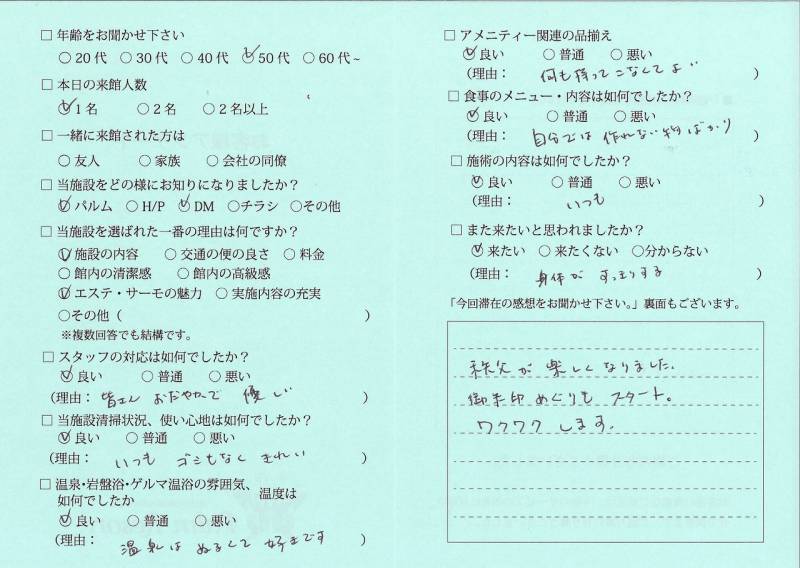 □ 年齢をお聞かせ下さい
○ 20代 ○ 30代 ○ 40代 ○ 50代 ○ 60代~
□ 本日の来館人数
○ 1名 ○ 2名 ○ 2名以上
□ 一緒に来館された方は
○ 友人 ○ 家族 ○ 会社の同僚
□ 当施設をどの様にお知りになりましたか？
○ パルム ○ H/P ○ DM ○チラシ ○その他
□ 当施設を選ばれた一番の理由は何ですか？
○ 施設の内容 ○ 交通の便の良さ ○ 料金
○ 館内の清潔感 ○ 館内の高級感
○ エステ・サーモの魅力 ○ 実施内容の充実
○その他（ ）
※複数回答でも結構です。
□ スタッフの対応は如何でしたか？
○ 良い ○ 普通 ○ 悪い
(理由： 皆さん おだやかで 優しい )
□ 当施設清掃状況、使い心地は如何でしたか？
○ 良い ○ 普通 ○ 悪い
(理由： いつも ゴミもなく きれい )
□ 温泉・岩盤浴・ゲルマ温浴の雰囲気、温度は
如何でしたか
○ 良い ○ 普通 ○ 悪い
(理由： 温泉は ぬるくて 好きです )
□ アメニティー関連の品揃え
○ 良い ○ 普通 ○ 悪い
(理由： 何も持ってこなくてよい )
□ 食事のメニュー・内容は如何でしたか？
○ 良い ○ 普通 ○ 悪い
(理由： 自分では 作れない物ばかり )
□ 施術の内容は如何でしたか？
○ 良い ○ 普通 ○ 悪い
(理由： いつも )
□ また来たいと思われましたか？
○ 来たい ○ 来たくない ○分からない
(理由： 身体が すっきりする )
「今回滞在の感想をお聞かせ下さい。」裏面もございます。
秩父が 楽しくなりました。
御朱印めぐりも スタート。
ワクワク します。